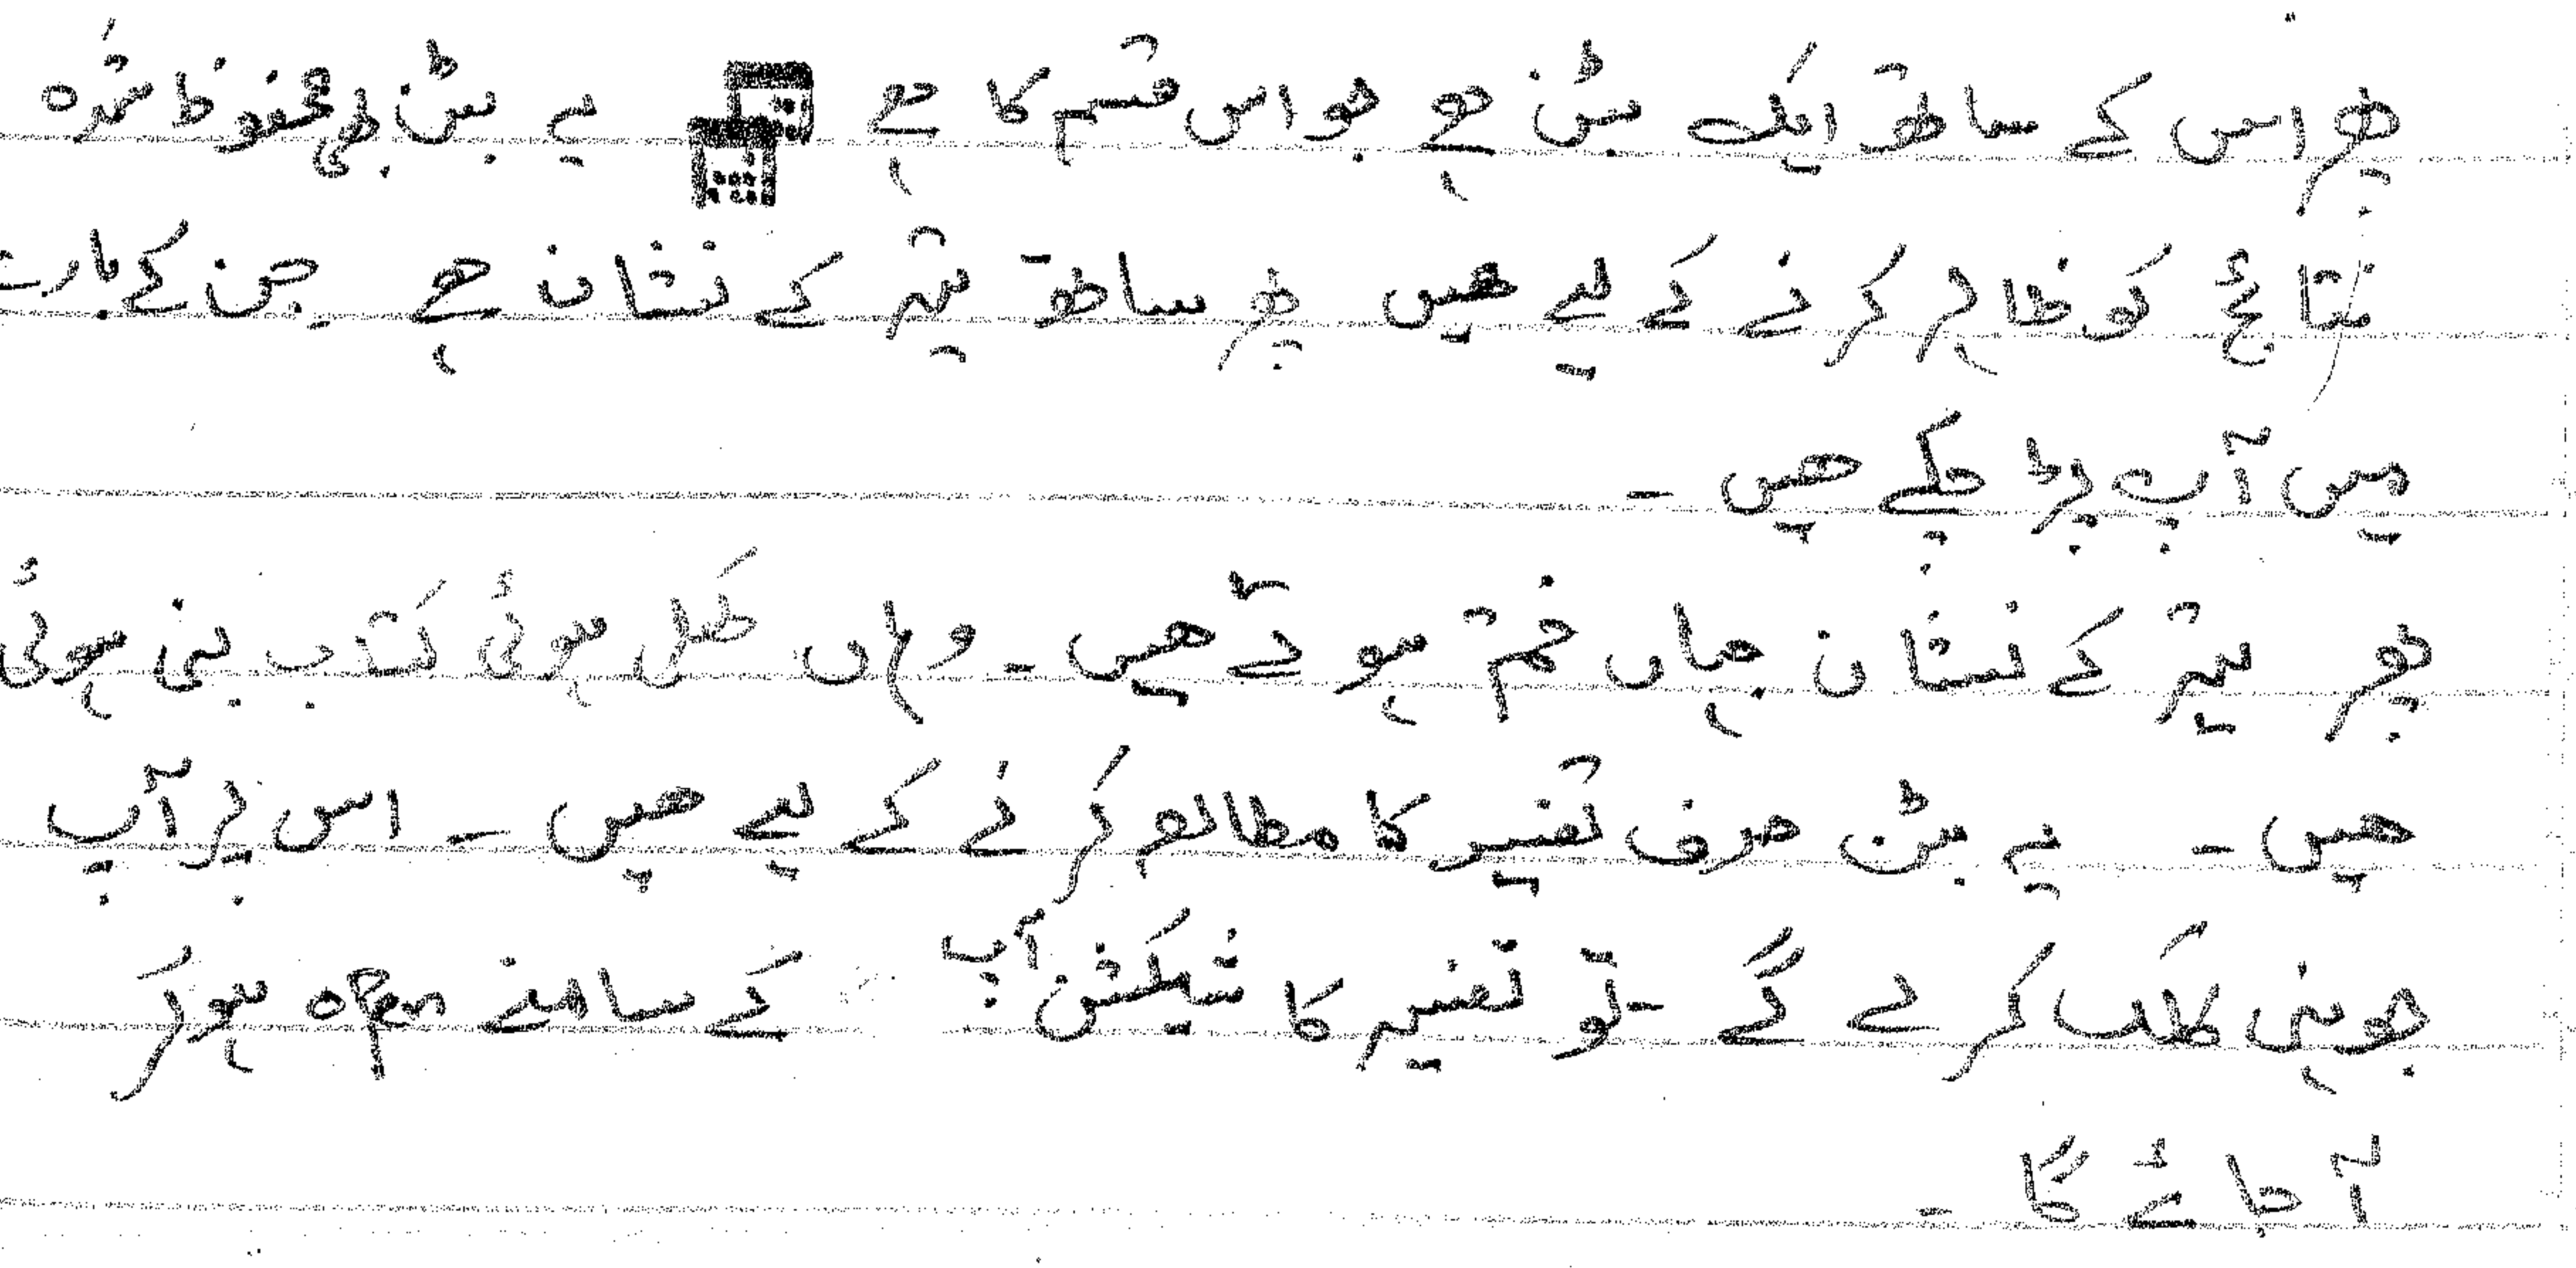 پھر اس کے ساتھ ایک بٹن ہے جو اس قسم کا ہے یہ بٹن بھی محفوظ شدہ
نتائج کو ظاہر کرنے کے لیے ھیں پھر ساتھ تیر کے نشان ہے جن کے بارے
میں آپ پڑ چکے ھیں ۔
پھر تیر کے نشان جہاں ختم ہوتے ھیں ۔ وہاں کھلی ہوئی کتاب بنی ہوئی
ھیں ۔ یہ بٹن صرف تفسیر کا مطالعہ کرنے کے لیے ھیں ۔ اس پر آپ
جونہی کلک کرے گے ۔ تو تفسیر کا شیکشن آپ کے سامنے open ہوکر
آجائے گا ۔